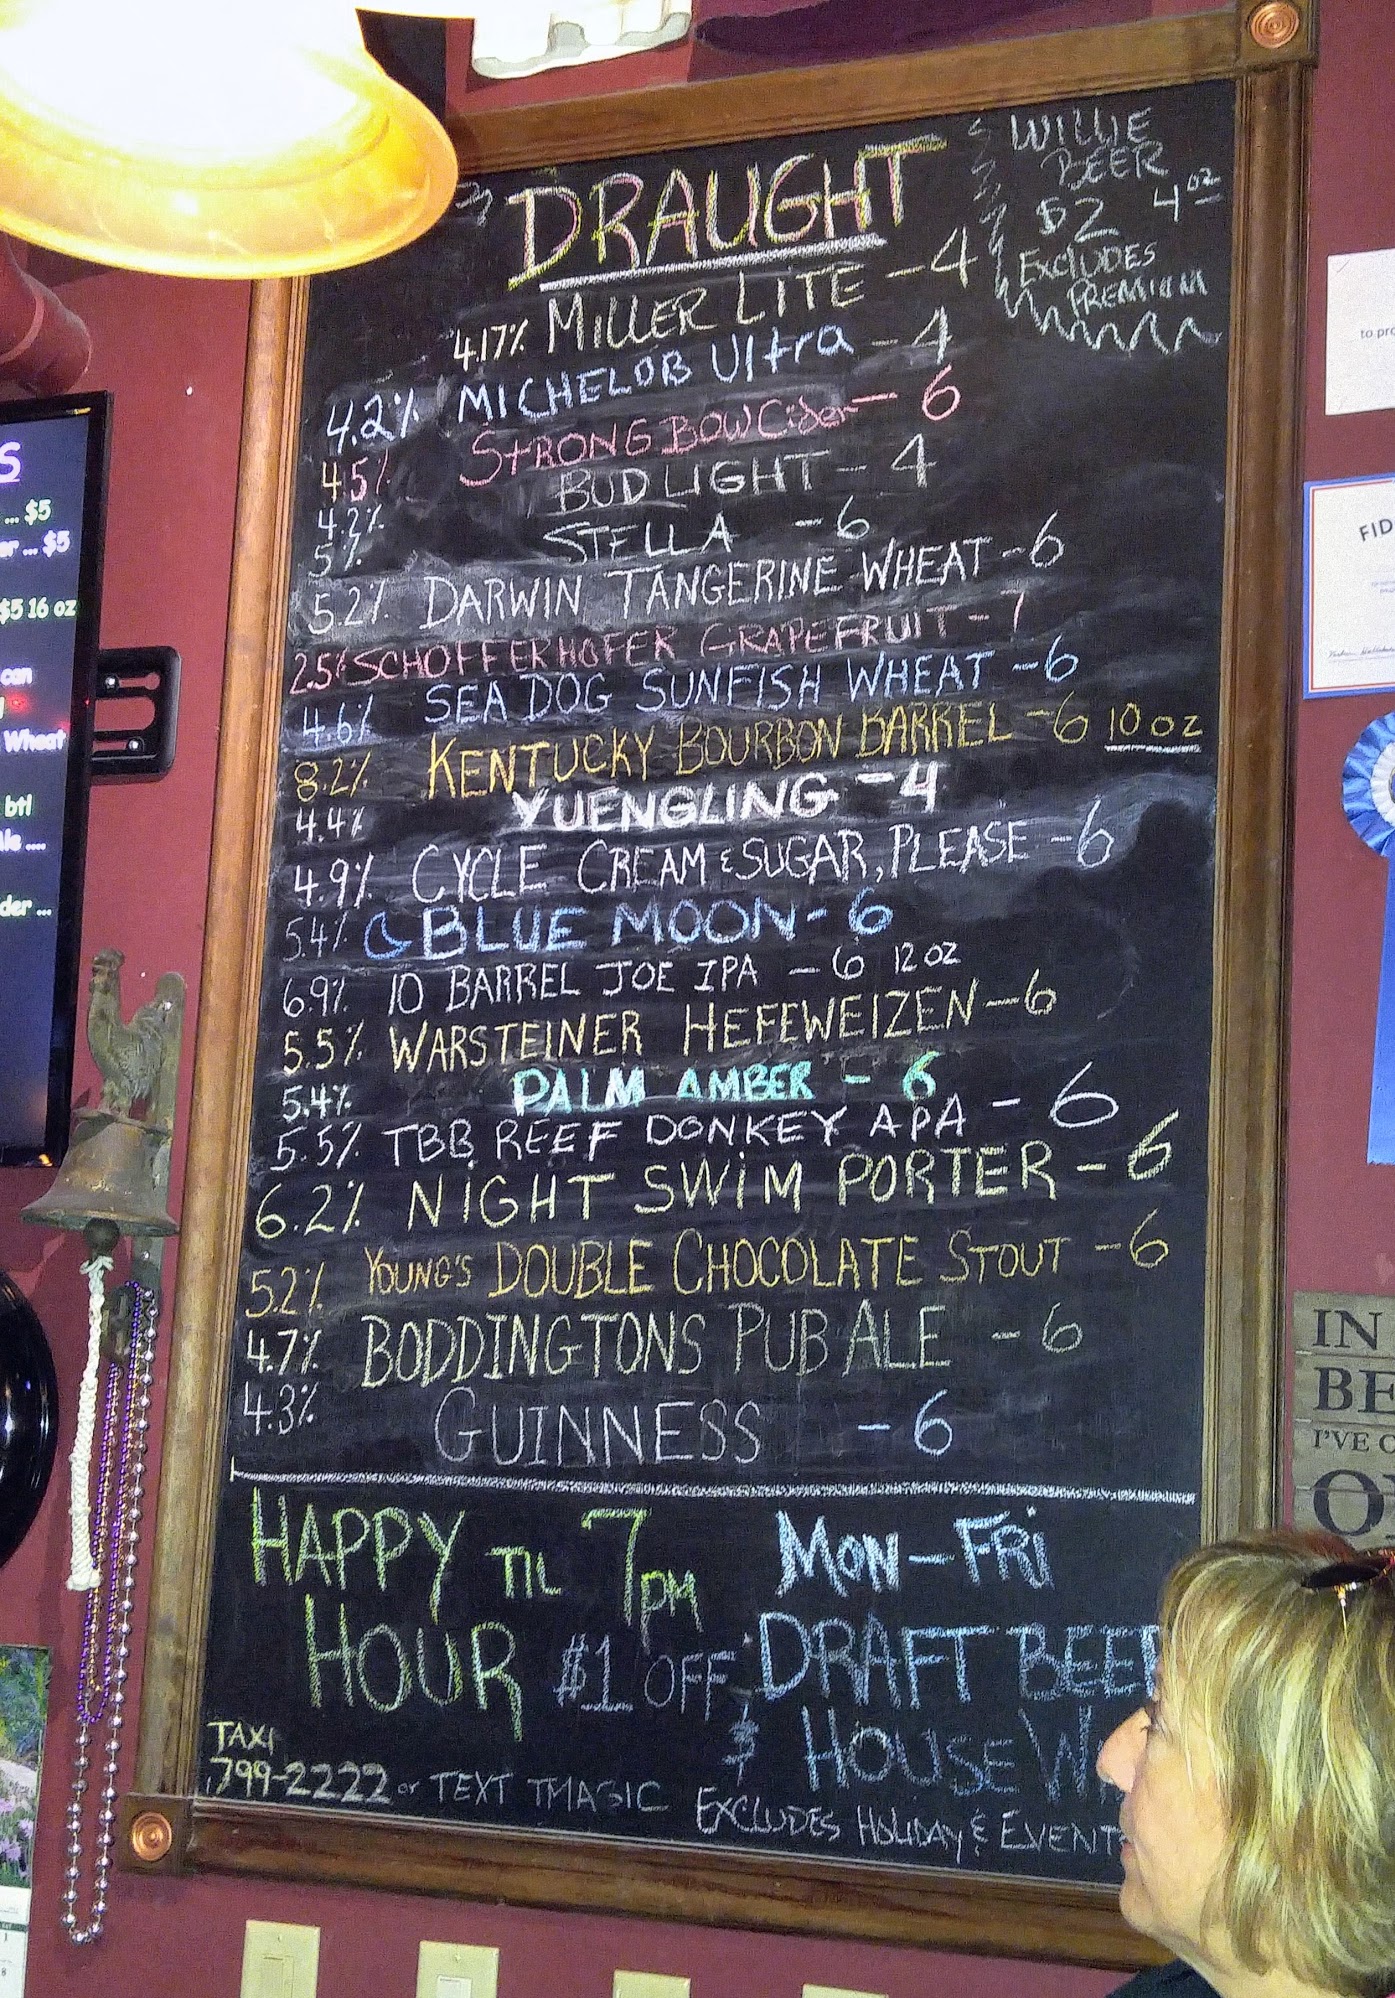 DRAUGHT
WILLIE
BEER
$2 4 oz
EXCLUDES
PREMIUM
4.17% MILLER LITE - 4
4.2% MICHELOB Ultra - 4
4.5% STRONGBOW Cider - 6
4.2% BUD LIGHT - 4
5% STELLA - 6
5.2% DARWIN TANGERINE WHEAT - 6
2.5% SCHOFFERHOFER GRAPEFRUIT - 7
4.6% SEA DOG SUNFISH WHEAT - 6
8.2% KENTUCKY BOURBON BARREL - 6 10 oz
4.4% YUENGLING - 4
4.9% CYCLE CREAM & SUGAR, PLEASE - 6
5.4% BLUE MOON - 6
6.9% 10 BARREL JOE IPA - 6 12 oz
5.5% WARSTEINER HEFEWEIZEN - 6
5.4% PALM AMBER - 6
5.5% TBB REEF DONKEY APA - 6
6.2% NIGHT SWiM PORTER - 6
5.2% YOUNG'S DOUBLE CHOCOLATE STOUT - 6
4.7% BODDINGTONS PUB ALE - 6
4.3% GUINNESS - 6
HAPPY TIL 7PM MON-FRi
HOUR $1 OFF DRAFT BEE
& HOUSE W
TAXI
799-2222 or TEXT TMAGIC EXCLUDES HOLIDAY & EVENT
S
... $5
er ... $5
$5 16 oz
can
Wheat
btl
der ...
to pro
FID
IN
BE
I'VE